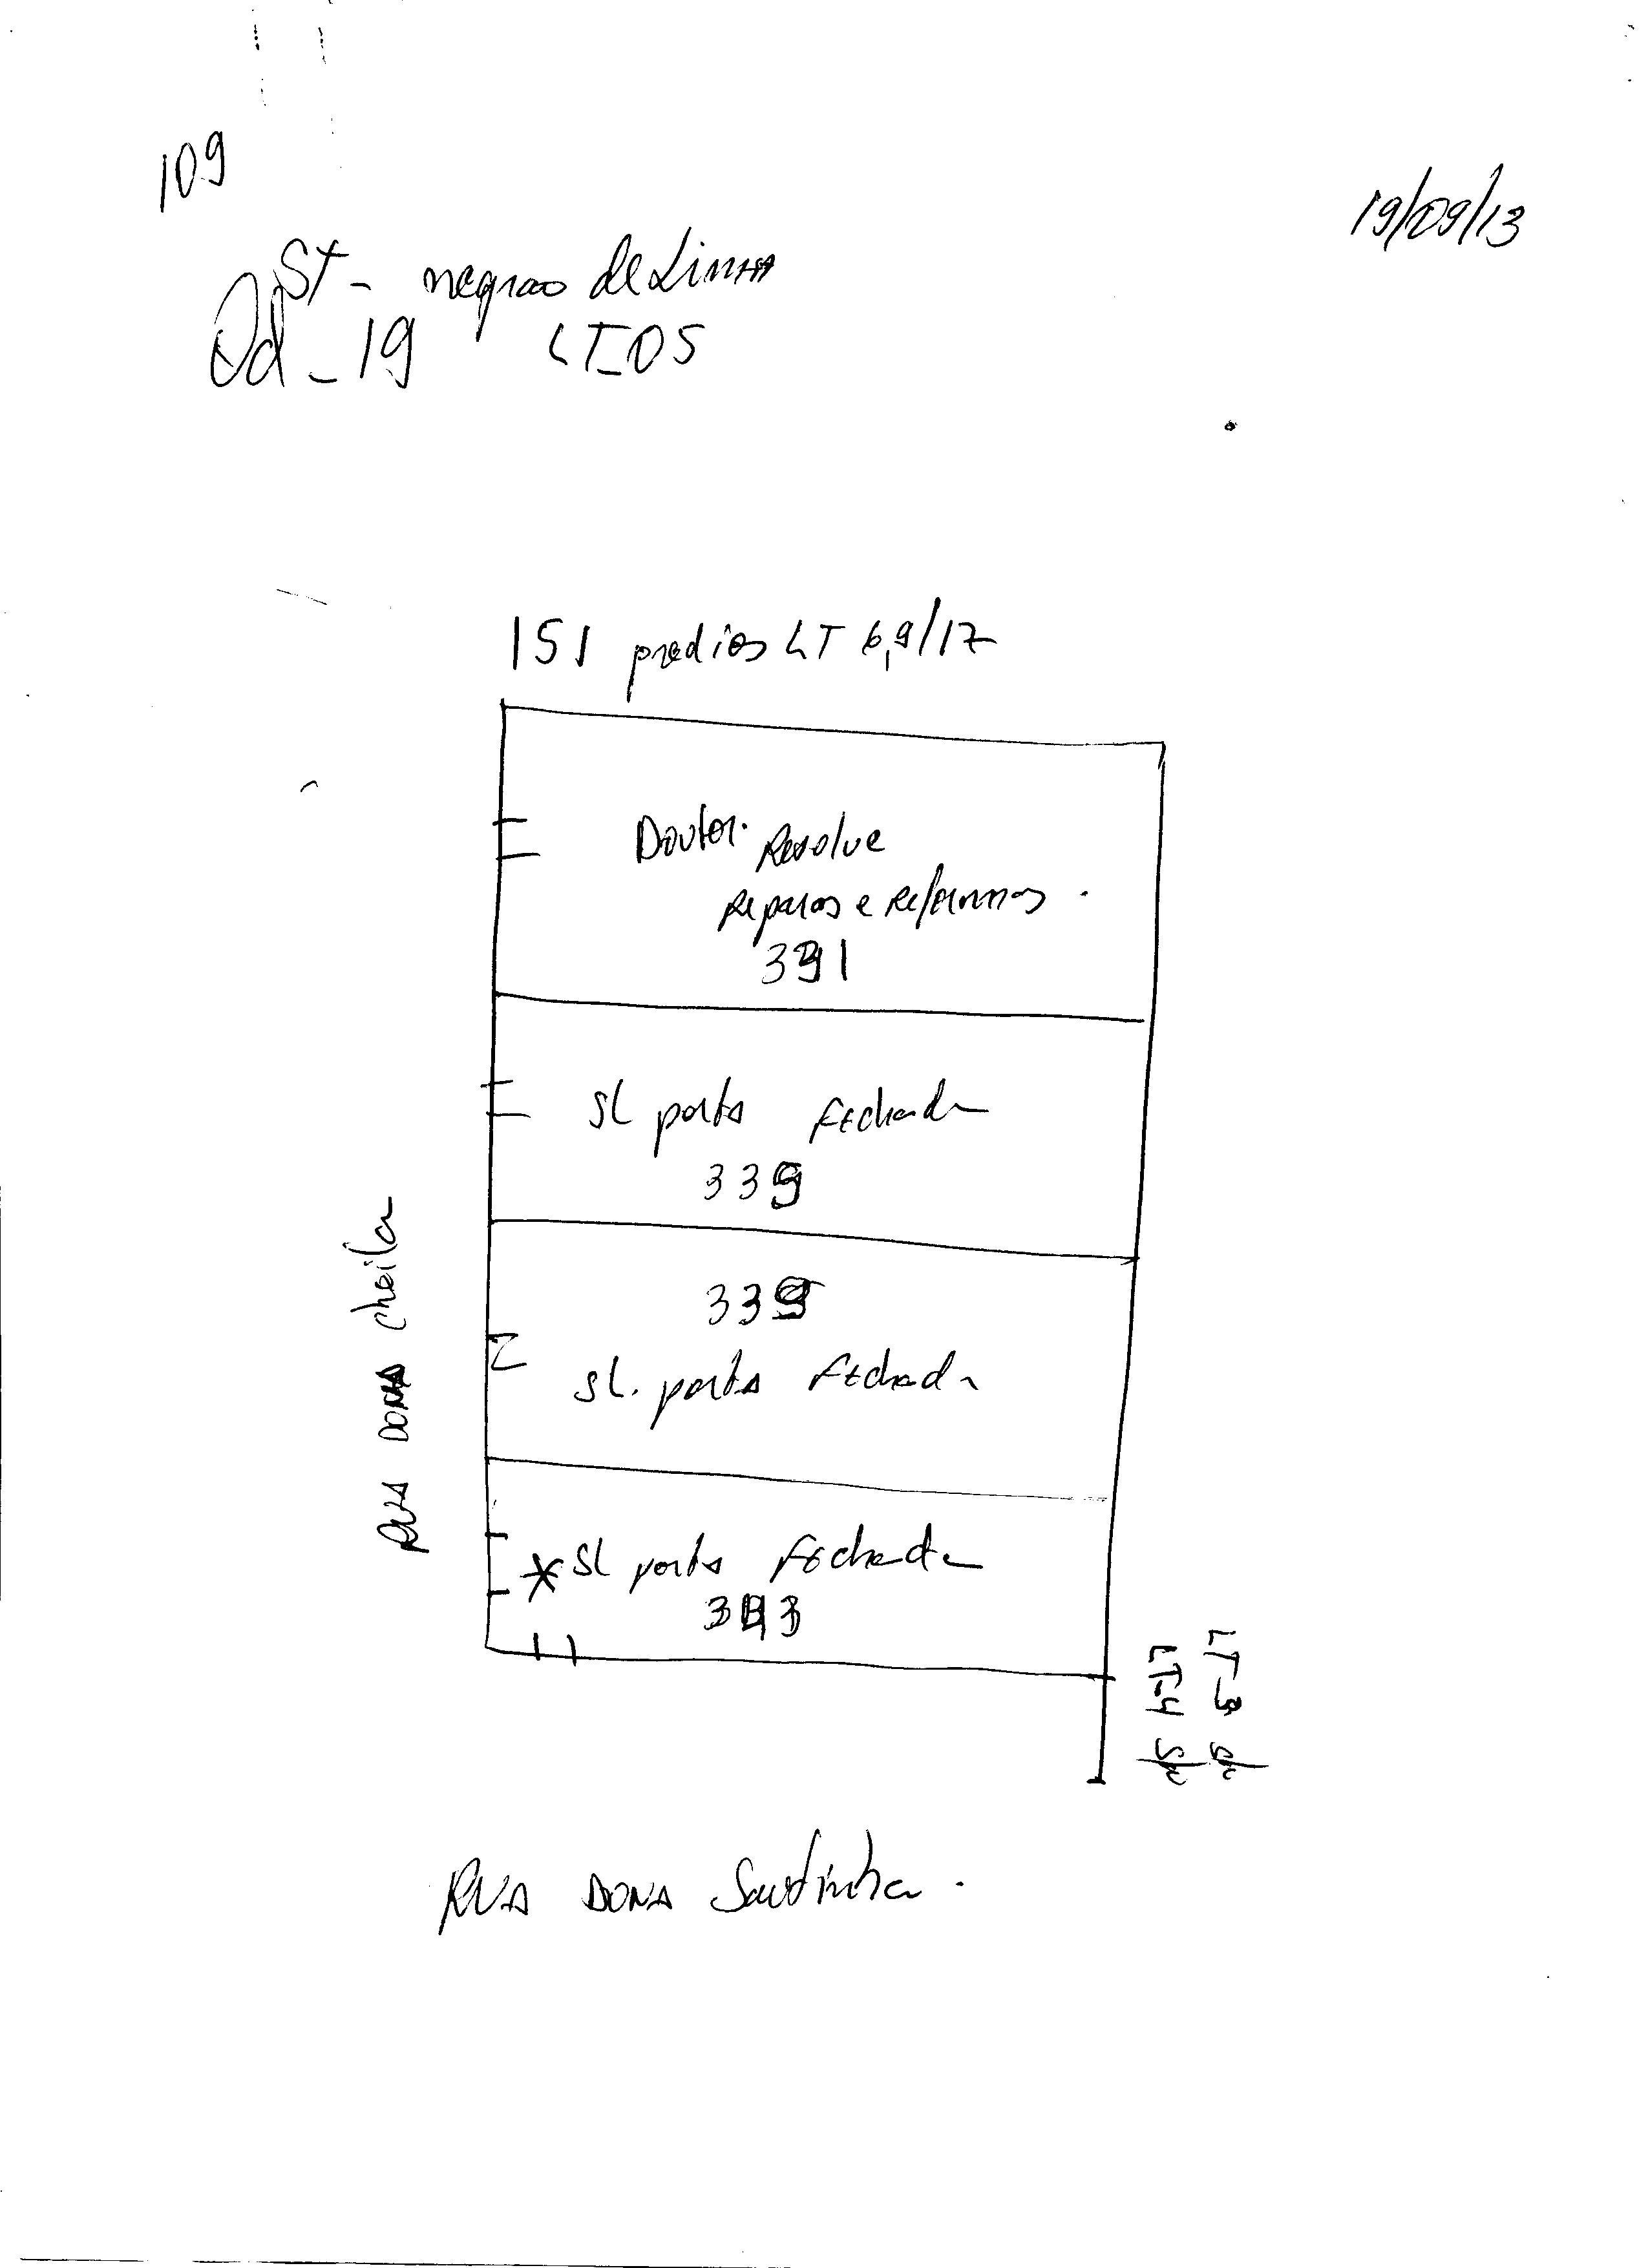 109
19/09/13
St - negrao de Lima
Qd - 19 LT-05
151 predios LT 6,9/17
Doutor Resolve
Reparos e Reformas.
331
SL porta fechada
339
339
SL. porta fechada
Rua Dona Cheila
* SL porta fechada
343
LT-4
LT-3
RUA DONA Santinha.